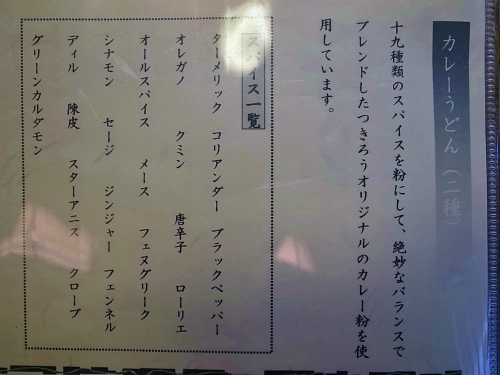 カレーうどん(二種)
十九種類のスパイスを粉にして、絶妙なバランスで
ブレンドしたつきろうオリジナルのカレー粉を使
用しています。
スパイス一覧
ターメリック コリアンダー ブラックペッパー
オレガノ クミン 唐辛子 ローリエ
オールスパイス メース フェヌグリーク
シナモン セージ ジンジャー フェンネル
ディル 陳皮 スターアニス クローブ
グリーンカルダモン